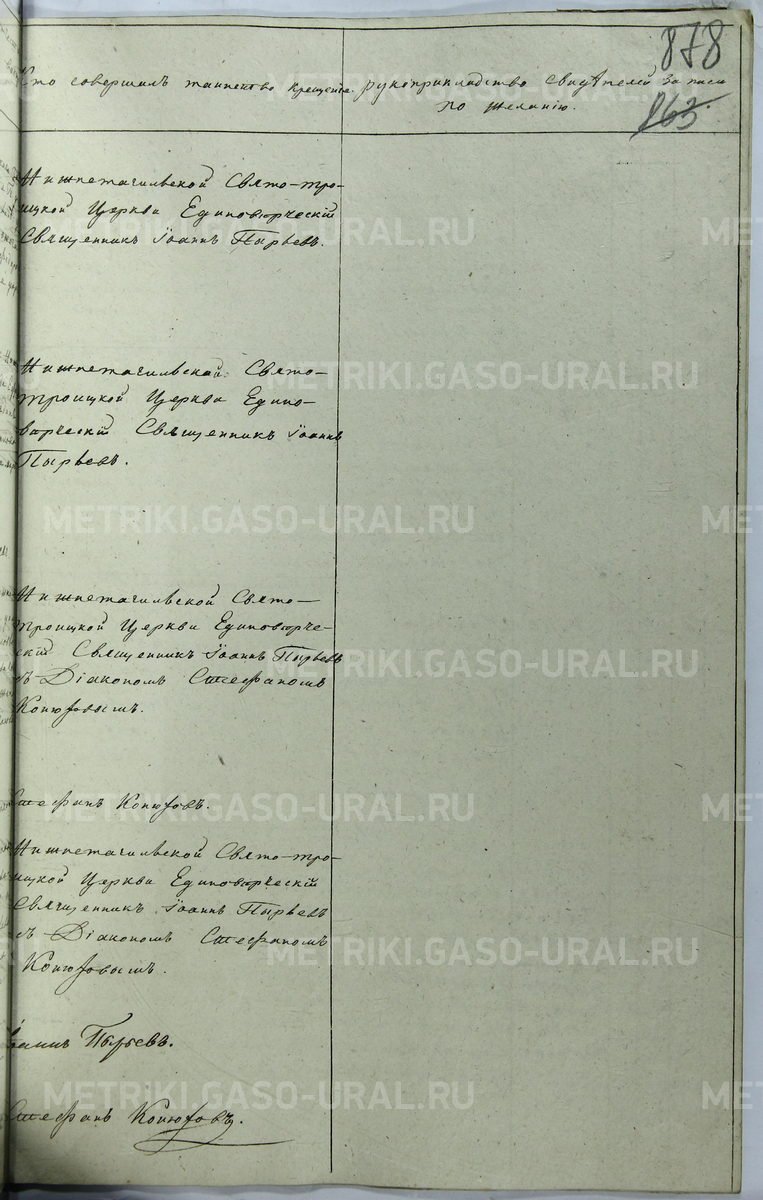 878
863.
Кто совершалъ таинство крещенiе.
рукоприкладство свидѣтелей записи
по желанiю.
Нижнетагильской Свято-тро-
ицкой Церкви Единовѣрческiй
Священникъ Iоаннъ Пырьевъ.
Нижнетагильской Свято-
троицкой Церкви Едино-
вѣрческiй Священникъ Iоаннъ
Пырьевъ.
Нижнетагильской Свято-
троицкой Церкви Единовѣрче-
скiй Священникъ Iоаннъ Пырьевъ
съ Дiакономъ Стефаномъ
Конюховымъ.
Стефанъ Конюховъ.
Нижнетагильской Свято-тро-
ицкой Церкви Единовѣрческiй
Священникъ Iоаннъ Пырьевъ
съ Дiакономъ Стефаномъ
Конюховымъ.
Iоаннъ Пырьевъ.
Стефанъ Конюховъ.
METRIKI.GASO-URAL.RU